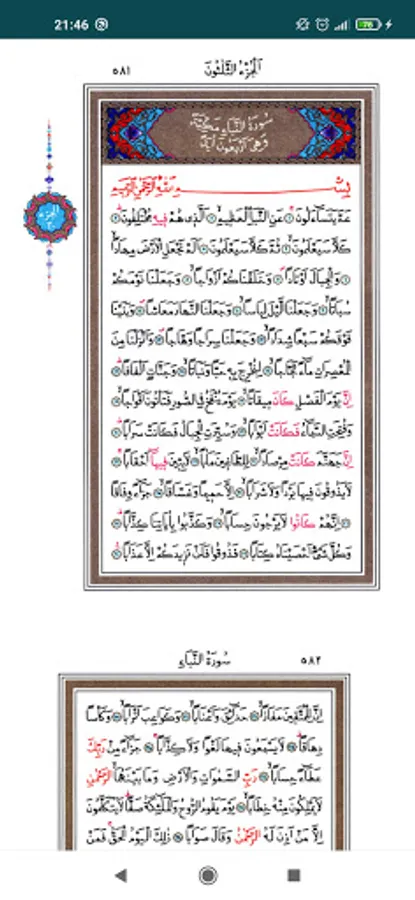 21:46
76
٥٨١
اَلْجُزْءُ الثَّلٰثُونَ
سُورَةُ النَّبَأِ مَكِّيَّةٌ
وَهِيَ اَرْبَعُونَ اٰيَةً
اَلْجُزْءُ
٣٠
بِسْمِ اللّٰهِ الرَّحْمٰنِ الرَّحِيمِ
عَمَّ يَتَسَٓاءَلُونَ ۝ عَنِ النَّبَأِ الْعَظِيمِ ۝ اَلَّذِى هُمْ فِيهِ مُخْتَلِفُونَ ۝
كَلَّا سَيَعْلَمُونَ ۝ ثُمَّ كَلَّا سَيَعْلَمُونَ ۝ اَلَمْ نَجْعَلِ الْاَرْضَ مِهَادًا
۝ وَالْجِبَالَ اَوْتَادًا ۝ وَخَلَقْنَاكُمْ اَزْوَاجًا ۝ وَجَعَلْنَا نَوْمَكُمْ
سُبَاتًا ۝ وَجَعَلْنَا الَّيْلَ لِبَاسًا ۝ وَجَعَلْنَا النَّهَارَ مَعَاشًا ۝ وَبَنَيْنَا
فَوْقَكُمْ سَبْعًا شِدَادًا ۝ وَجَعَلْنَا سِرَاجًا وَهَّاجًا ۝ وَاَنْزَلْنَا مِنَ
الْمُعْصِرَاتِ مَٓاءً ثَجَّاجًا ۝ لِنُخْرِجَ بِهِ حَبًّا وَنَبَاتًا ۝ وَجَنَّاتٍ اَلْفَافًا ۝
اِنَّ يَوْمَ الْفَصْلِ كَانَ مِيقَاتًا ۝ يَوْمَ يُنْفَخُ فِى الصُّورِ فَتَأْتُونَ اَفْوَاجًا ۝
وَفُتِحَتِ السَّمَٓاءُ فَكَانَتْ اَبْوَابًا ۝ وَسُيِّرَتِ الْجِبَالُ فَكَانَتْ سَرَابًا ۝
اِنَّ جَهَنَّمَ كَانَتْ مِرْصَادًا ۝ لِلطَّاغِينَ مَاٰبًا ۝ لَابِثِينَ فِيهَٓا اَحْقَابًا ۝
لَا يَذُوقُونَ فِيهَا بَرْدًا وَلَا شَرَابًا ۝ اِلَّا حَمِيمًا وَغَسَّاقًا ۝ جَزَٓاءً وِفَاقًا
۝ اِنَّهُمْ كَانُوا لَا يَرْجُونَ حِسَابًا ۝ وَكَذَّبُوا بِاٰيَاتِنَا كِذَّابًا ۝
وَكُلَّ شَىْءٍ اَحْصَيْنَاهُ كِتَابًا ۝ فَذُوقُوا فَلَنْ نَزِيدَكُمْ اِلَّا عَذَابًا ۝
سُورَةُ النَّبَأِ
٥٨٢
اِنَّ لِلْمُتَّقِينَ مَفَازًا ۝ حَدَٓائِقَ وَاَعْنَابًا ۝ وَكَوَاعِبَ اَتْرَابًا ۝ وَكَأْسًا
دِهَاقًا ۝ لَا يَسْمَعُونَ فِيهَا لَغْوًا وَلَا كِذَّابًا ۝ جَزَٓاءً مِنْ رَبِّكَ
عَطَٓاءً حِسَابًا ۝ رَبِّ السَّمٰوَاتِ وَالْاَرْضِ وَمَا بَيْنَهُمَا الرَّحْمٰنِ
لَا يَمْلِكُونَ مِنْهُ خِطَابًا ۝ يَوْمَ يَقُومُ الرُّوحُ وَالْمَلٰٓئِكَةُ صَفًّا لَا يَتَكَلَّمُونَ
اِلَّا مَنْ اَذِنَ لَهُ الرَّحْمٰنُ وَقَالَ صَوَابًا ۝ ذٰلِكَ الْيَوْمُ الْحَقُّ فَمَنْ